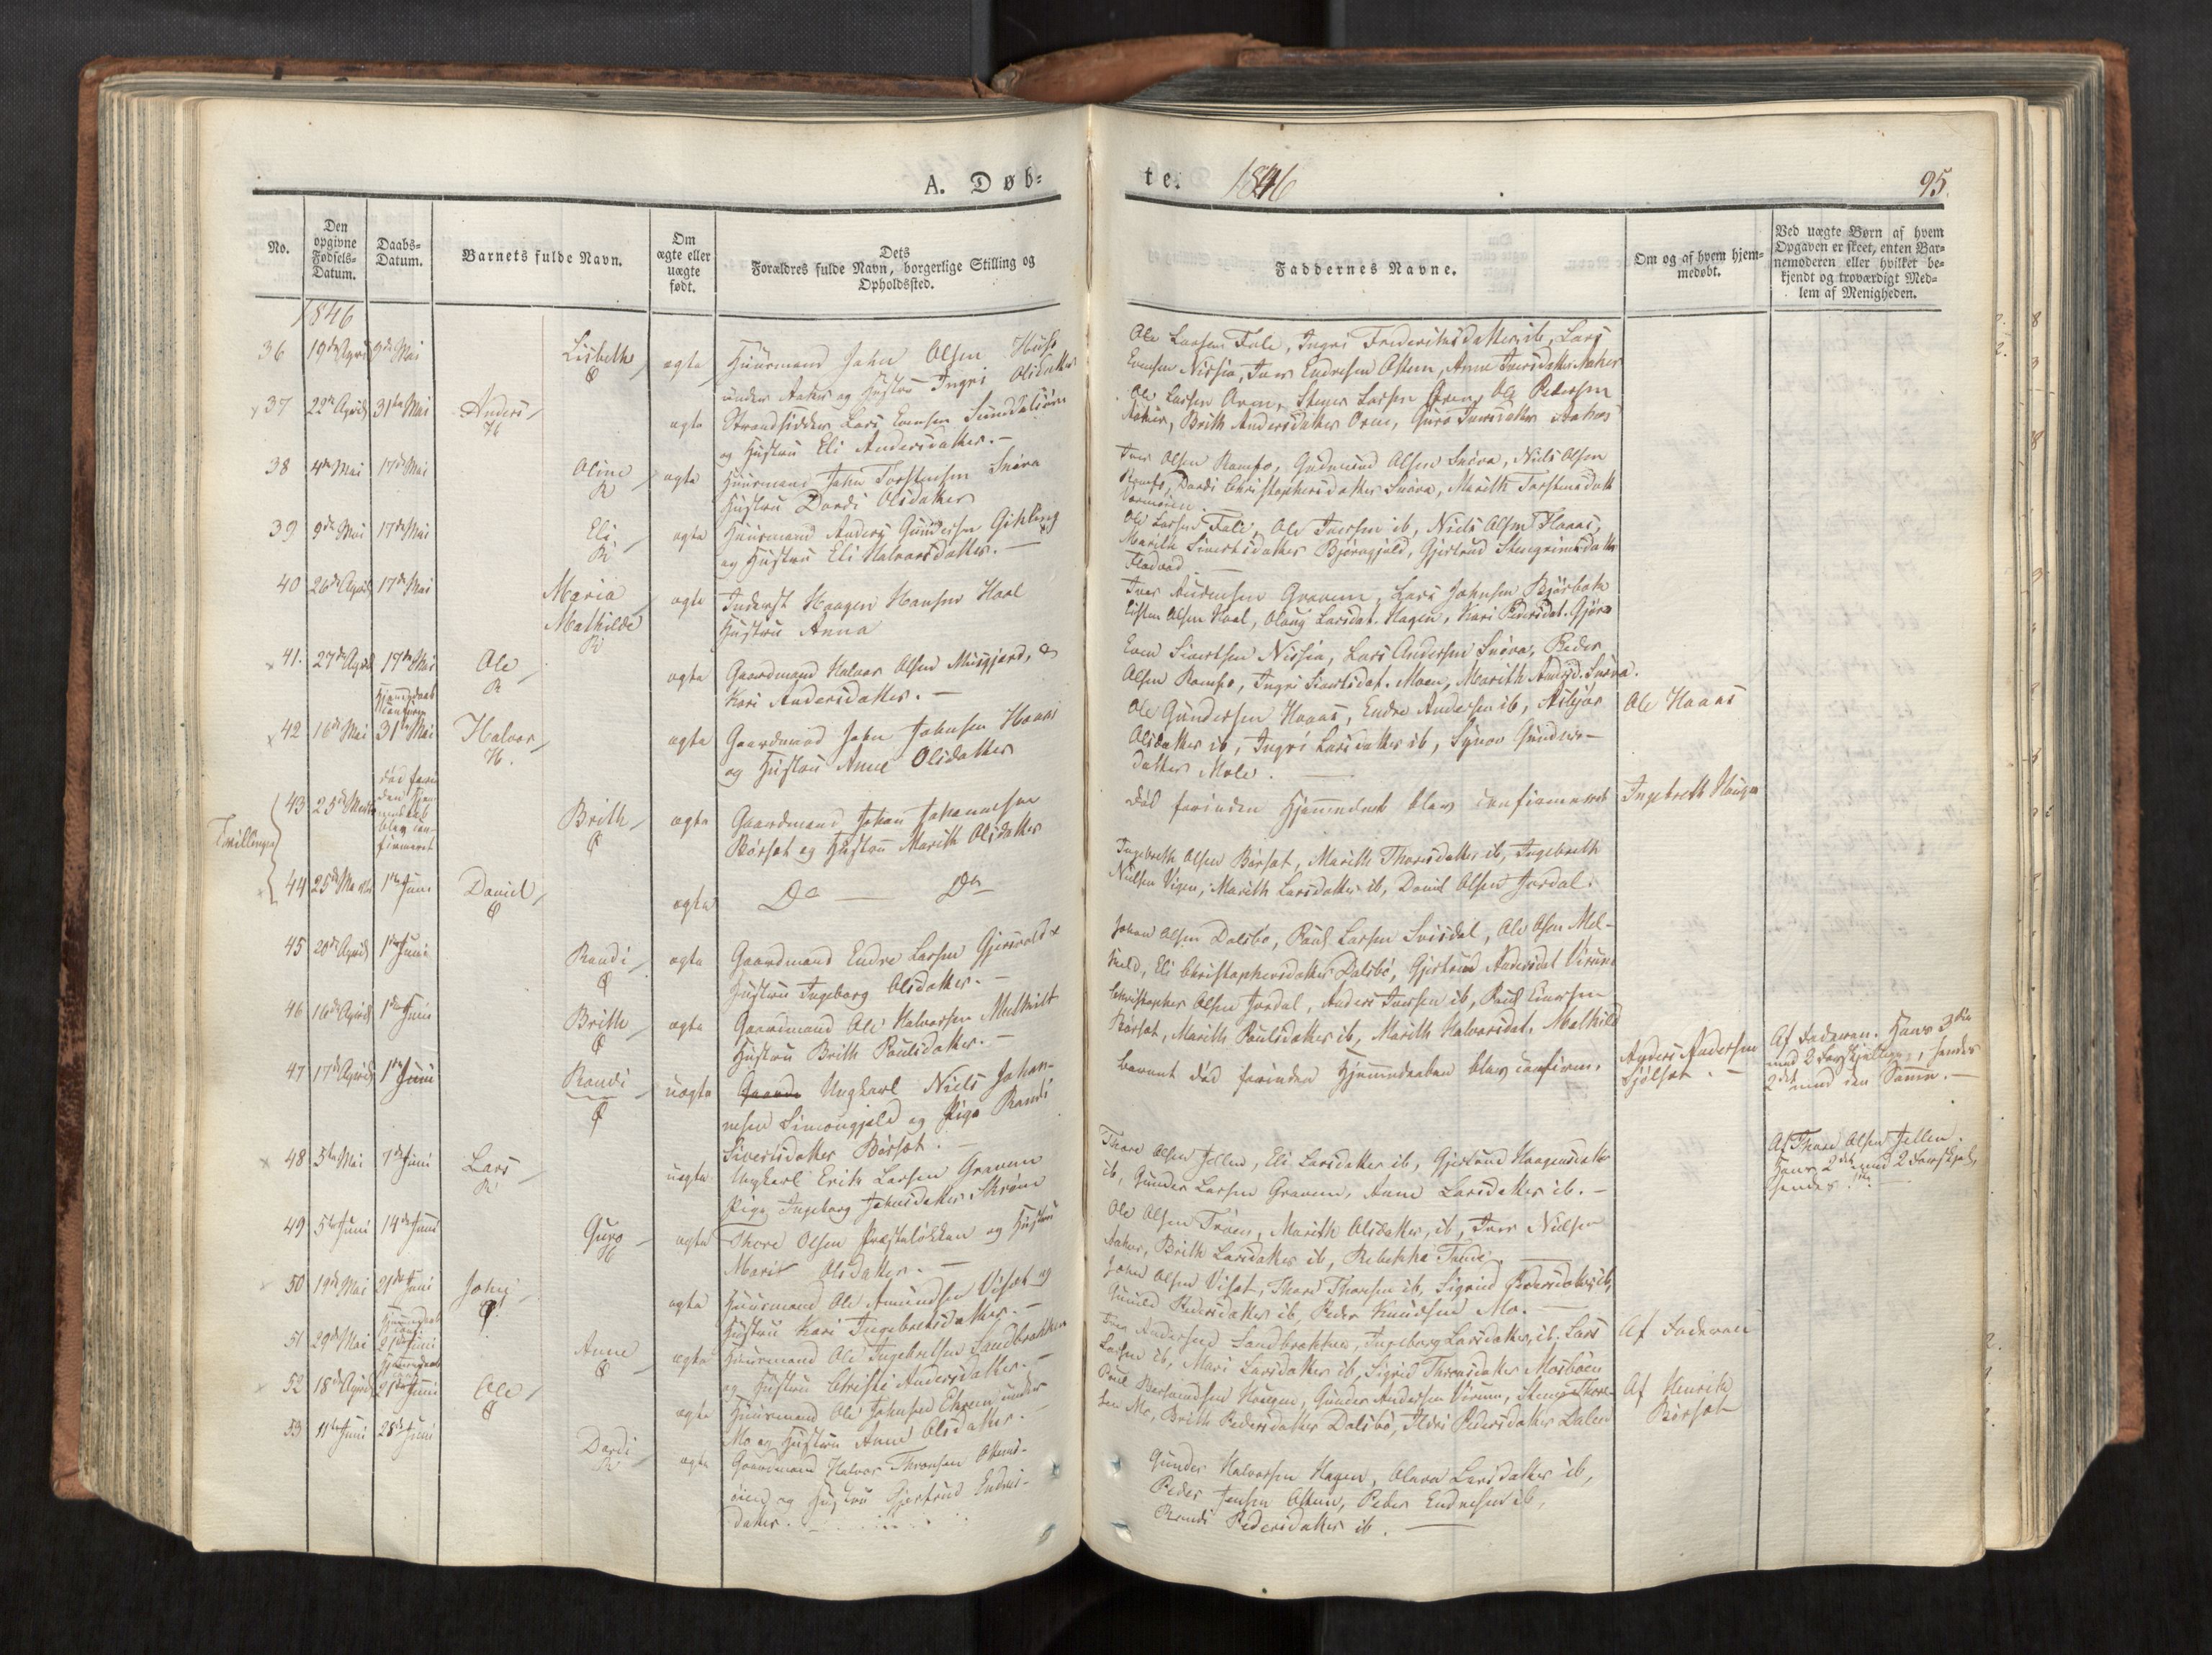 A. Døb=
te.
1846
95.
No.
Den opgivne Fødsels=Datum.
Daabs=Datum.
Barnets fulde Navn.
Om ægte eller uægte født.
Dets Forældres fulde Navn, borgerlige Stilling og Opholdssted.
Faddernes Navne.
Om og af hvem hjem=medøbt.
Ved uægte Børn af hvem Opgaven er skeet, enten Bar=nemoderen eller hvilket be=kjendt og troværdigt Med=lem af Menigheden.
1846
36 19de April Mai Lisbeth ægte Huusmand John Olsen
under Aaker og Hustru Ingri Olsdatter
Ole Larsen Fale, Ingri Frederiksdatter ib, Lars
Evensen Nisja, Iver Endresen Ottem, Anne Iversdatter Aaker
37 22de April 31te Mai Anders ægte Strandsidder Lars Evensen Sunddalsøren
og Hustru Eli Andersdatter. –
Ole Larsen Oren, Ole Pedersen
Brith Andersdatter Oren, Guro Iversdatter
38 4de Mai 17de Mai Oline ægte Huusmand John Torstensen Snøva
Hustru Dordi Olsdatter
Iver Olsen Romfo, Gudmund Olsen Snøva, Niels Olsen
Romfo, Dordi Christophersdatter Snøva, Marith Torstensdatt
39 9de Mai 17de Mai Eli ægte Huusmand Anders Gundersen Gikling
og Hustru Eli Halvorsdatter. –
Ole Larsen Fale, Ole Iversen ib, Niels Olsen Hoaas,
Marith Sivertsdatter Gjertrud Stengrimsdatter
Flodvad
40 26de April 17de Mai Maria
Mathilde ægte Inderst Haagen Hansen Hoel
Hustru Anna
Iver Audensen Gravem, Lars Johnsen
Olsen Hoel, Olaug Larsdat. Hagen, Kari Pedersdat. Gjøra
41. 27de April 17de Mai Ole ægte Gaardmand Halvor Olsen Musgjerd, &
Kari Andersdatter. –
Even Sivertsen Nisja, Lars Andersen Snøva, Peder
Olsen Romfo, Ingri Sivertsdat. Moen, Marith Andersd. Snøva.
42 16de Mai 31te Mai Halvor ægte Gaardmand John Johnsen Hoaas
og Hustru Anne Olsdatter
Ole Gundersen Hoaas, Endre Andersen ib,
Olsdatter ib, Ingri Larsdatter ib, Synov Gunders-
datter Mole. –
Ole Hoaas
Tvillinger
43 25de Marts død forin
den Hjem
medaab
blev con-
firmeret Brith ægte Gaardmand Johan Johannesen
Børset og Hustru Marith Olsdatter
død forinden Hjemmedaab blev confirmeret
Ingebreth Haugen
44 25de Marts 1ste Juni Daniel ægte Do — Do
Ingebreth Olsen Børset, Marith Thoresdatter ib, Ingebreth
Nielsen Vigen, Marith Larsdatter ib, Daniel Olsen Jordal.
45 20de April 1ste Juni Randi ægte Gaardmand Endre Larsen Gjersvold &
Hustru Ingeborg Olsdatter. –
Johan Olsen Dalsbø, Poul Larsen Svisdal, Ole Olsen Mel-
Eli Christophersdatter Dalsbø, Gjertrud Andersdat Virum
46 16de April 1ste Juni Brith ægte Gaardmand Ole Halvorsen
Hustru Brith Poulsdatter. –
Christopher Olsen Jordal, Anders Iversen ib, Poul Einersen
Børset, Marith Poulsdatter ib, Marith Halvorsdat.
47 17de April 1ste Juni Randi uægte Ungkarl Niels Johan-
nesen og Pige Randi
Sivertsdatter Børset. –
Barnet død forinden Hjemmedaaben blev confirm.
Anders Andersen
Sjølset. –
Af Faderen. Hans 3die
med 2 Forskjellige, hendes
2det med den Samme. –
48 5te Mai 7de Juni Lars uægte Ungkarl Erik Larsen Gravem
Pige Ingeborg Johnsdatter
Thore Olsen Jellen, Eli Larsdatter ib, Gjertrud Haagensdatter
ib, Gunder Larsen Gravem, Anne Larsdatter ib. –
Af Thore Olsen Jellen.
Hans 2det med 2 Forskjel.
hendes 1ste
49 5te Juni 14de Juni Guro ægte Thore Olsen Præsteløkken og Hustru
Marit Olsdatter. –
Ole Olsen Trøen, Marith Olsdatter, ib, Iver Nielsen
Brith Larsdatter ib, Rebekka
50 19de Mai 21de Juni John ægte Huusmand Ole Amundsen Viset og
Hustru Kari Ingebretsdatter. –
John Olsen Viset, Thore Thoresen ib, Sigrid Pedersdatter ib,
Gunild Pedersdatter ib, Peder Knudsen Mo. –
51 29de Mai 21de Juni Anne ægte Huusmand Ole Ingebretsen Sandbrækken
og Hustru Christi Andersdatter. –
Iver Andersen Sandbrækken, Ingeborg Larsdatter, ib. Lars
Larsen ib, Mari Larsdatter ib, Sigrid Thronsdatter
Af Faderen
52 18de April 21de Juni Ole ægte Huusmand Ole Johnsen under
Mo og Hustru Anne Olsdatter. –
Poul Haugen, Gunder Andersen Virum,
sen Mo, Brith Pedersdatter Dalsbø, Ildri Pedersdatter Dalen
Af Henrik
Børset
53 11te Juni 28de Juni Dordi ægte Gaardmand Halvor Thronsen Ottems-
øien og Hustru Gjertrud Endres-
datter.
Gunder Halvorsen Hagen, Olava Larsdatter ib,
Peder Jensen Ottem, Peder Endresen ib,
Randi Pedersdatter ib. –